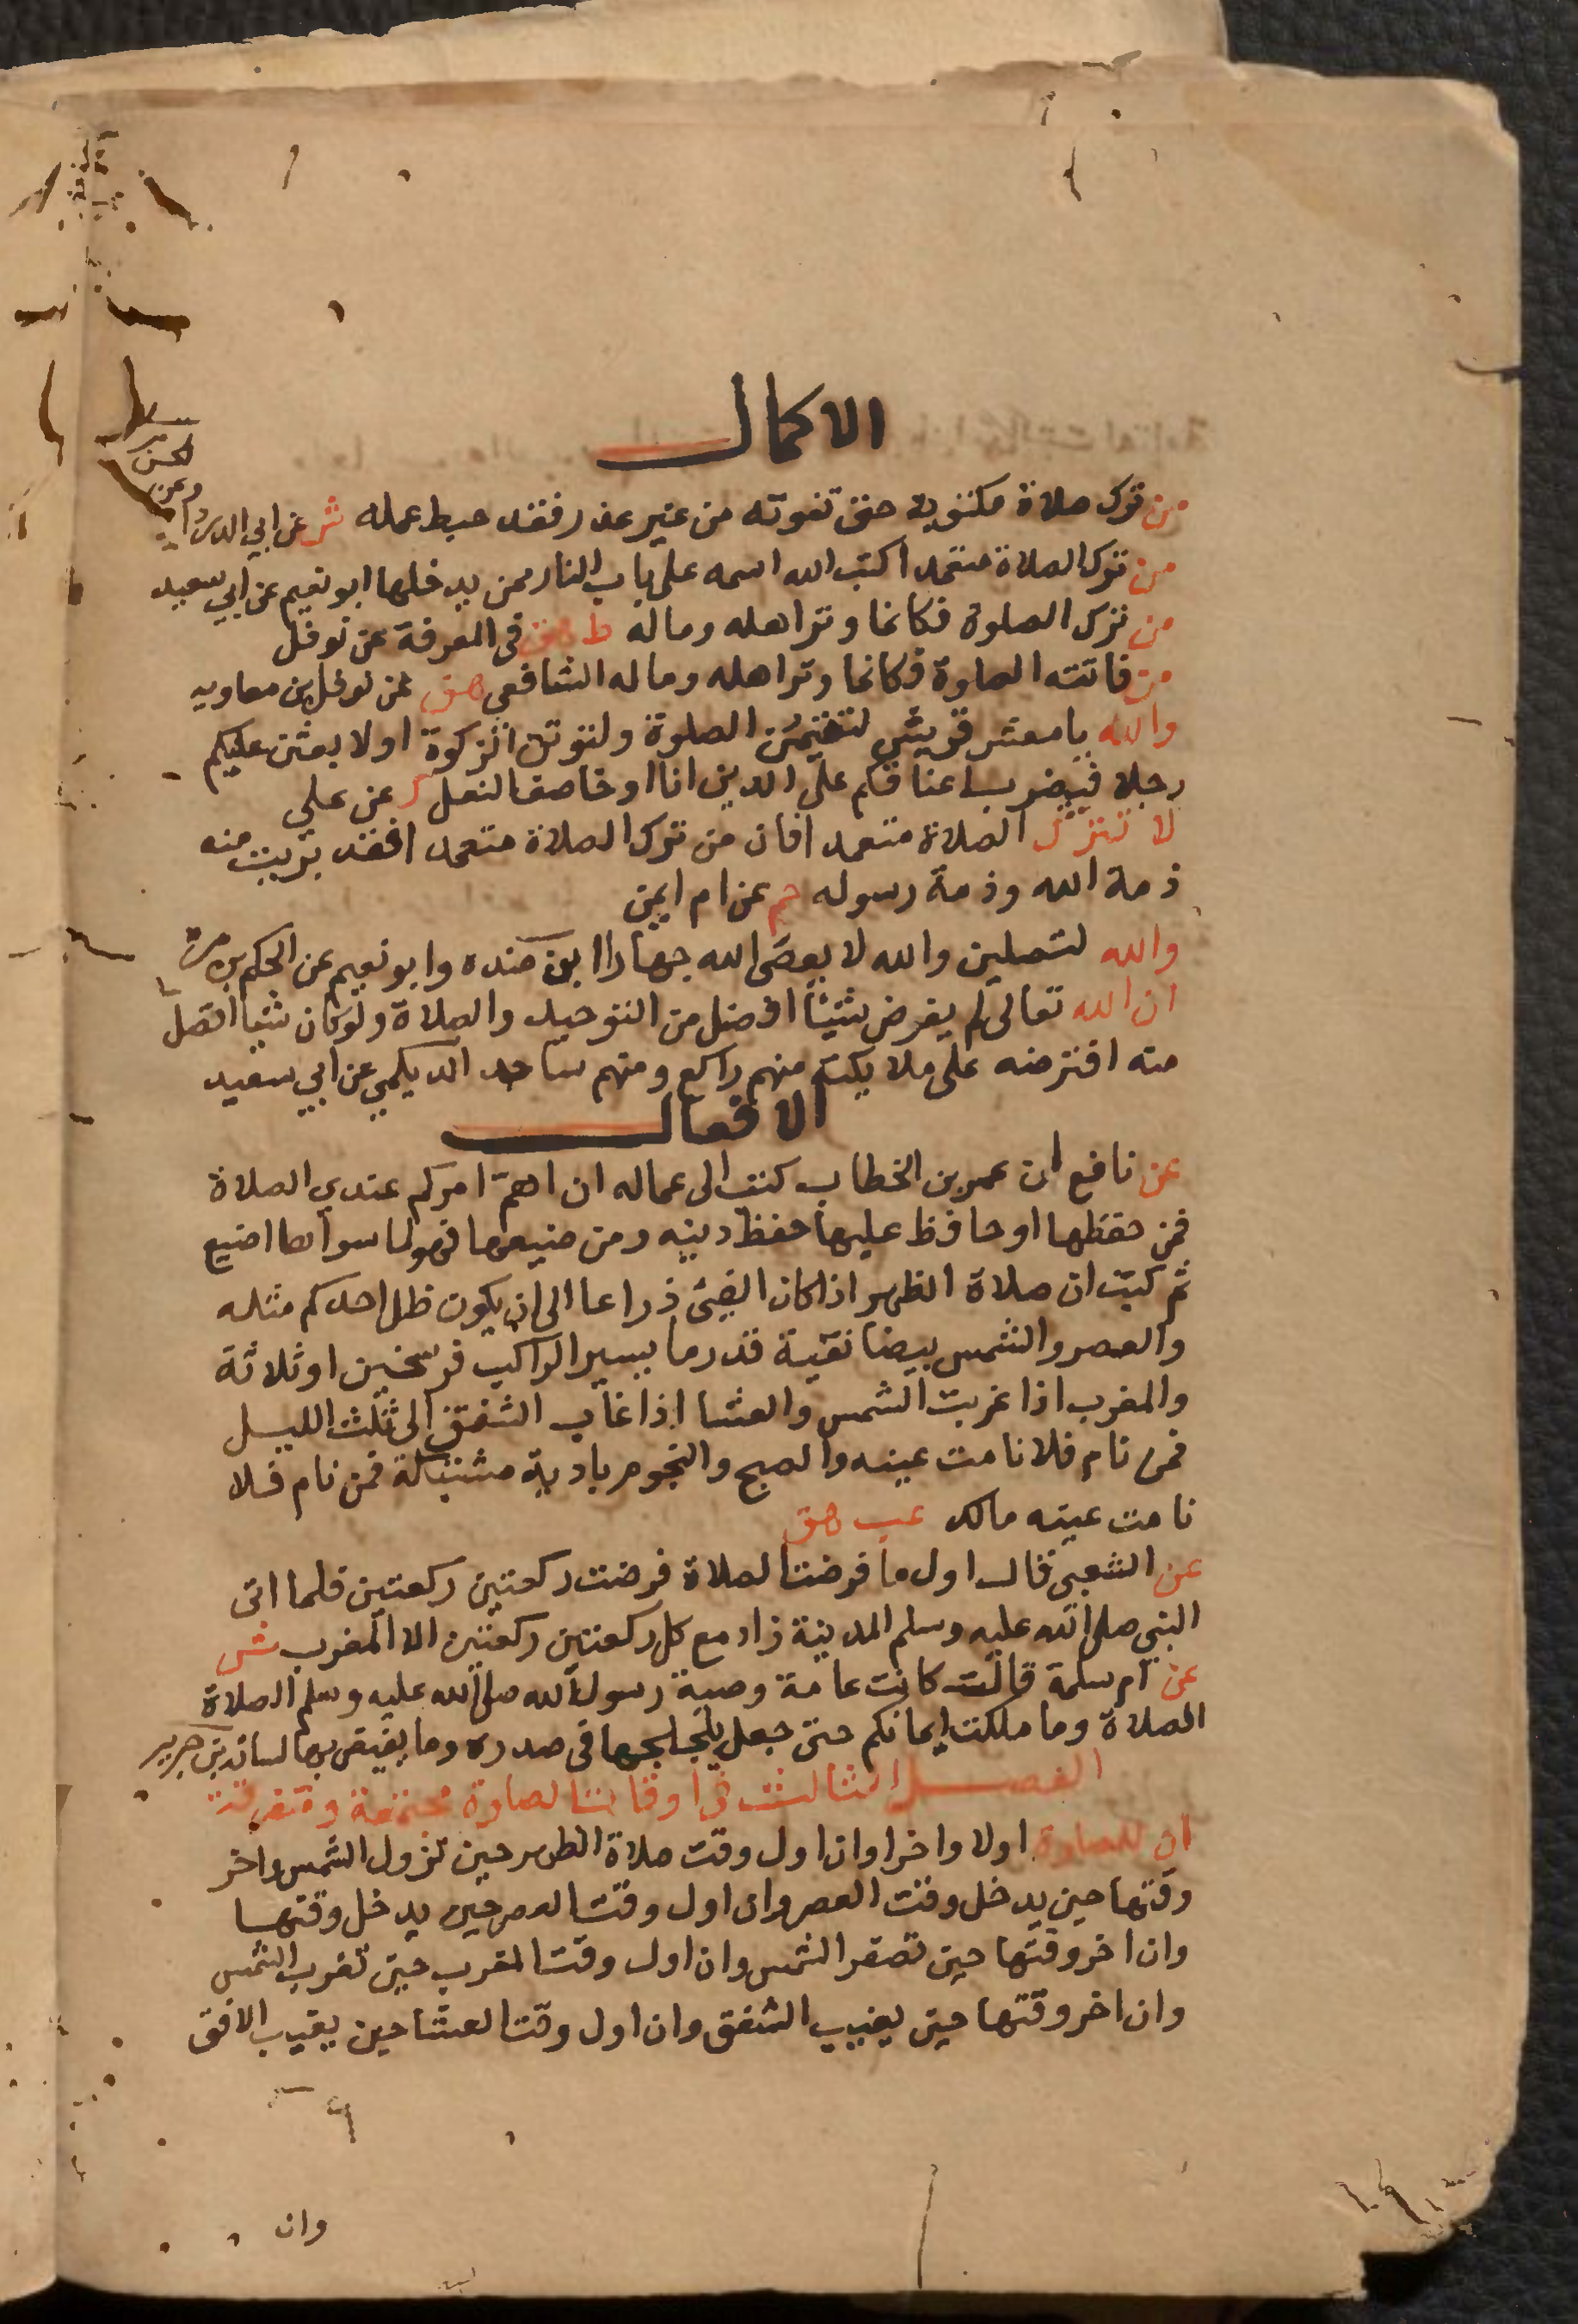 الاكمال
من ترك صلاة مكتوبة حتى تفوته من غير عذر فقد حبط عمله ش عن ابي الدرداء وعن الحسن
من ترك الصلاة متعمدا كتب الله اسمه على باب النار ممن يدخلها ابو نعيم عن ابي سعيد
من ترك الصلوة فكانما وتر اهله وماله ط هق في المعرفة عن نوفل
من فاتته الصلوة فكانما وتر اهله وماله الشافعي هق عن نوفل بن معاويه
والله يا معشر قريش لتقيمن الصلوة ولتوتن الزكوة او لابعثن عليكم
رجلا فيضرب اعناقكم على الدين انا او خاصف النعل ك عن علي
لا تترك الصلاة متعمدا فان من ترك الصلاة متعمدا فقد بريت منه
ذمة الله وذمة رسوله حم عن ام ايمن
والله لتصلين والله لا يعصى الله جهارا ابن منده وابو نعيم عن الحكم بن مرة
ان الله تعالى لم يفرض شيئا افضل من التوحيد والصلاة ولو كان شيا افضل
منه افترضه على ملائكته منهم راكع ومنهم ساجد الديلمي عن ابي سعيد
الافعال
عن نافع ان عمر بن الخطاب كتب الى عماله ان اهم امركم عندي الصلاة
فمن حفظها او حافظ عليها حفظ دينه ومن ضيعها فهو لما سواها اضيع
ثم كتب ان صلاة الظهر اذا كان الفئ ذراعا الى ان يكون ظل احدكم مثله
والعصر والشمس بيضا نقية قدر ما يسير الراكب فرسخين او ثلاثة
والمغرب اذا غربت الشمس والعشا اذا غاب الشفق الى ثلث الليل
فمن نام فلا نامت عينه والصبح والنجوم بادية مشتبكة فمن نام فلا
نامت عينه مالك عب هق
عن الشعبي قال اول ما فرضت الصلاة فرضت ركعتين ركعتين فلما اتى
النبي صلى الله عليه وسلم المدينة زاد مع كل ركعتين ركعتين الا المغرب ش
عن ام سلمة قالت كانت عامة وصية رسول الله صلى الله عليه وسلم الصلاة
الصلاة وما ملكت ايمانكم حتى جعل يلجلجها في صدره وما يفيض بها لسانه ابن جرير
الفصل الثالث في اوقات الصلوة مجتمعة ومتفرقة
ان للصلوة اولا واخرا وان اول وقت صلاة الظهر حين تزول الشمس واخر
وقتها حين يدخل وقت العصر وان اول وقت العصر حين يدخل وقتها
وان اخر وقتها حين تصفر الشمس وان اول وقت المغرب حين تغرب الشمس
وان اخر وقتها حين يغيب الشفق وان اول وقت العشا حين يغيب الافق
وان